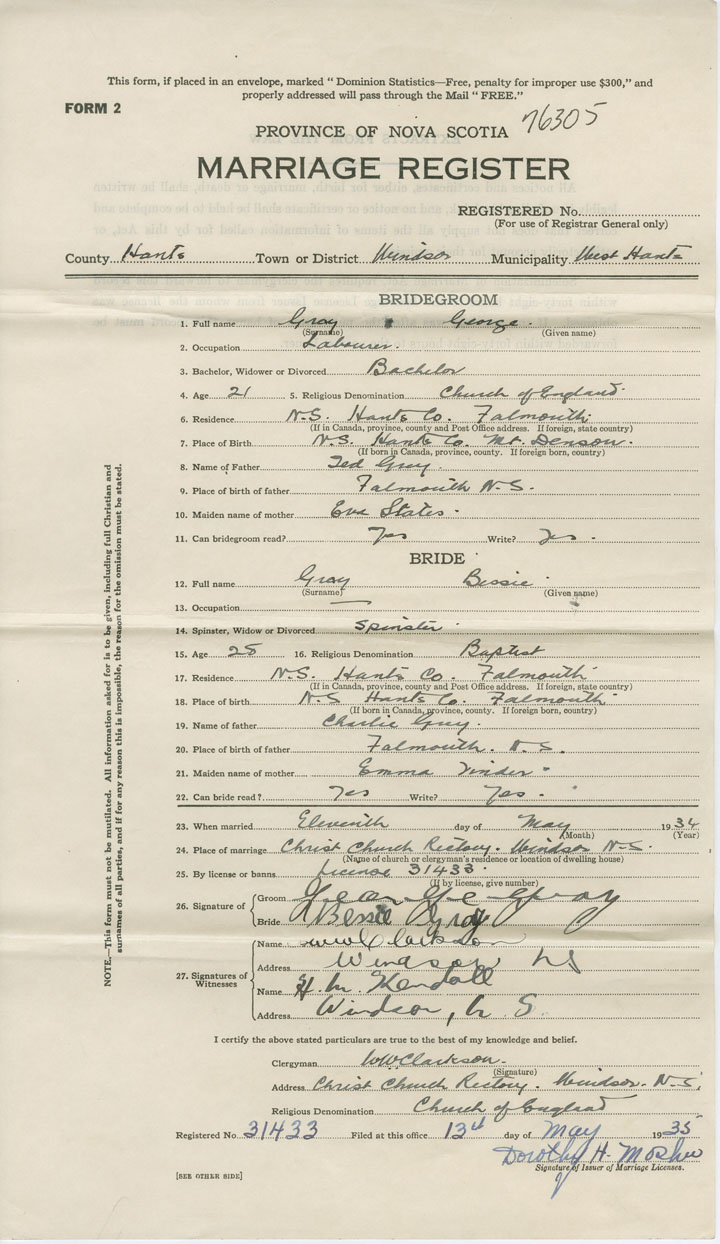 This form, if placed in an envelope, marked "Dominion Statistics—Free, penalty for improper use $300," and
properly addressed will pass through the Mail "FREE."
FORM 2
76305
PROVINCE OF NOVA SCOTIA
MARRIAGE REGISTER
REGISTERED No.
(For use of Registrar General only)
County Hants Town or District Windsor Municipality West Hants
BRIDEGROOM
1. Full name Gray George
(Surname) (Given name)
2. Occupation Labourer.
3. Bachelor, Widower or Divorced Bachelor
4. Age 21 5. Religious Denomination Church of England.
6. Residence N.S. Hants Co. Falmouth
(If in Canada, province, county and Post Office address. If foreign, state country)
7. Place of Birth N.S. Hants Co. Mt. Denson.
(If born in Canada, province, county. If foreign born, country)
8. Name of Father Ted Gray.
9. Place of birth of father Falmouth N.S.
10. Maiden name of mother Eva States.
11. Can bridegroom read? Yes Write? Yes.
BRIDE
12. Full name Gray Bessie
(Surname) (Given name)
13. Occupation —
14. Spinster, Widow or Divorced Spinster
15. Age 28 16. Religious Denomination Baptist
17. Residence N.S. Hants Co. Falmouth
(If in Canada, province, county and Post Office address. If foreign, state country)
18. Place of birth N.S Hants Co. Falmouth
(If born in Canada, province, county. If foreign born, country)
19. Name of father Charlie Gray.
20. Place of birth of father Falmouth. N.S.
21. Maiden name of mother Emma
22. Can bride read? Yes Write? Yes.
23. When married Eleventh day of May 1934
(Month) (Year)
24. Place of marriage Christ Church Rectory. Windsor N.S.
(Name of church or clergyman's residence or location of dwelling house)
25. By license or banns License 31433
(If by license, give number)
26. Signature of Groom George Gray
Bride Bessie Gray
27. Signatures of Witnesses Name Clarkson
Address Windsor NS
Name H. M. Kendall
Address Windsor, N. S.
I certify the above stated particulars are true to the best of my knowledge and belief.
Clergyman WW Clarkson.
(Signature)
Address Christ Church Rectory. Windsor. N.S.
Religious Denomination Church of England
Registered No. 31433 Filed at this office 13th day of May 1935
Dorothy H. Mosher
Signature of Issuer of Marriage Licenses.
[SEE OTHER SIDE]
NOTE.—This form must not be mutilated. All information asked for is to be given, including full Christian and
surnames of all parties, and if for any reason this is impossible, the reason for the omission must be stated.